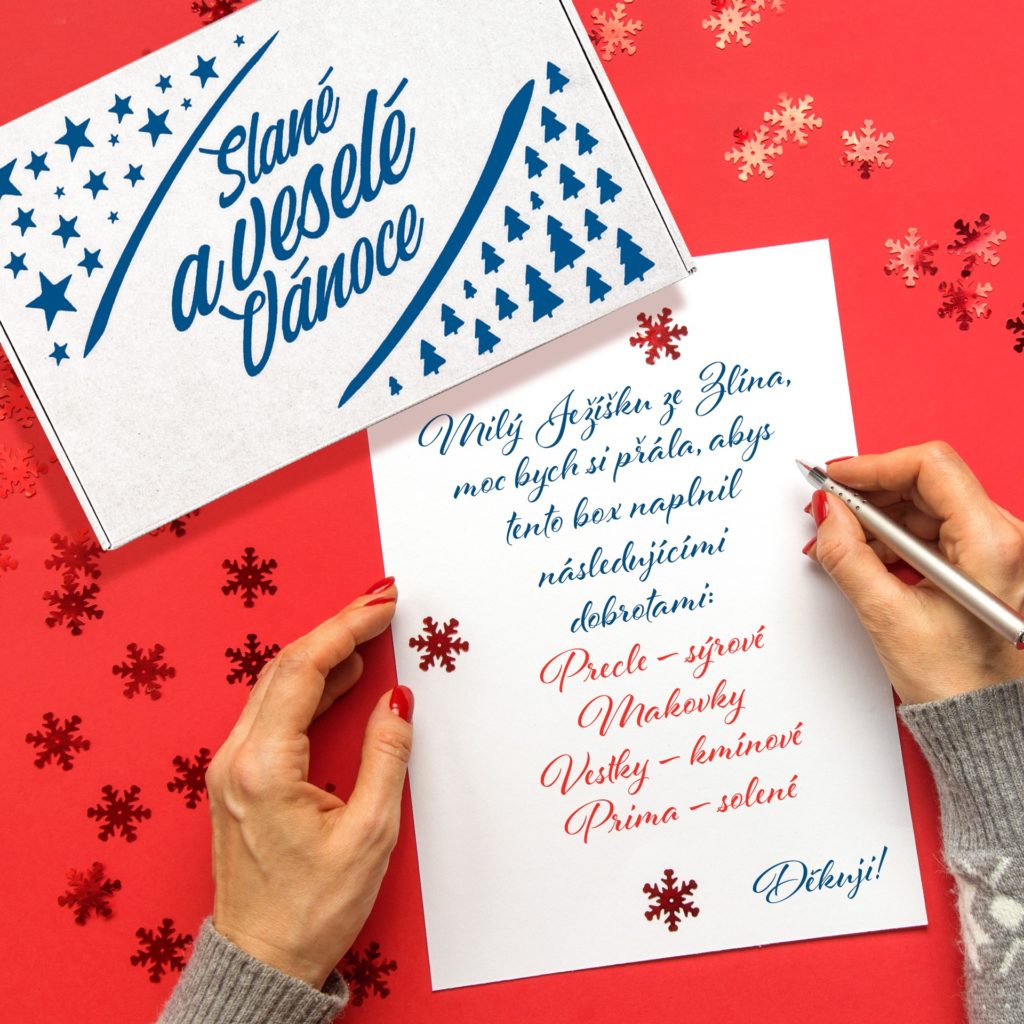 Slané
a veselé
Vánoce
Milý Ježíšku ze Zlína,
moc bych si přála, abys
tento box naplnil
následujícími
dobrotami:
Precle – sýrové
Makovky
Vestky – kmínové
Prima – solené
Děkuji!